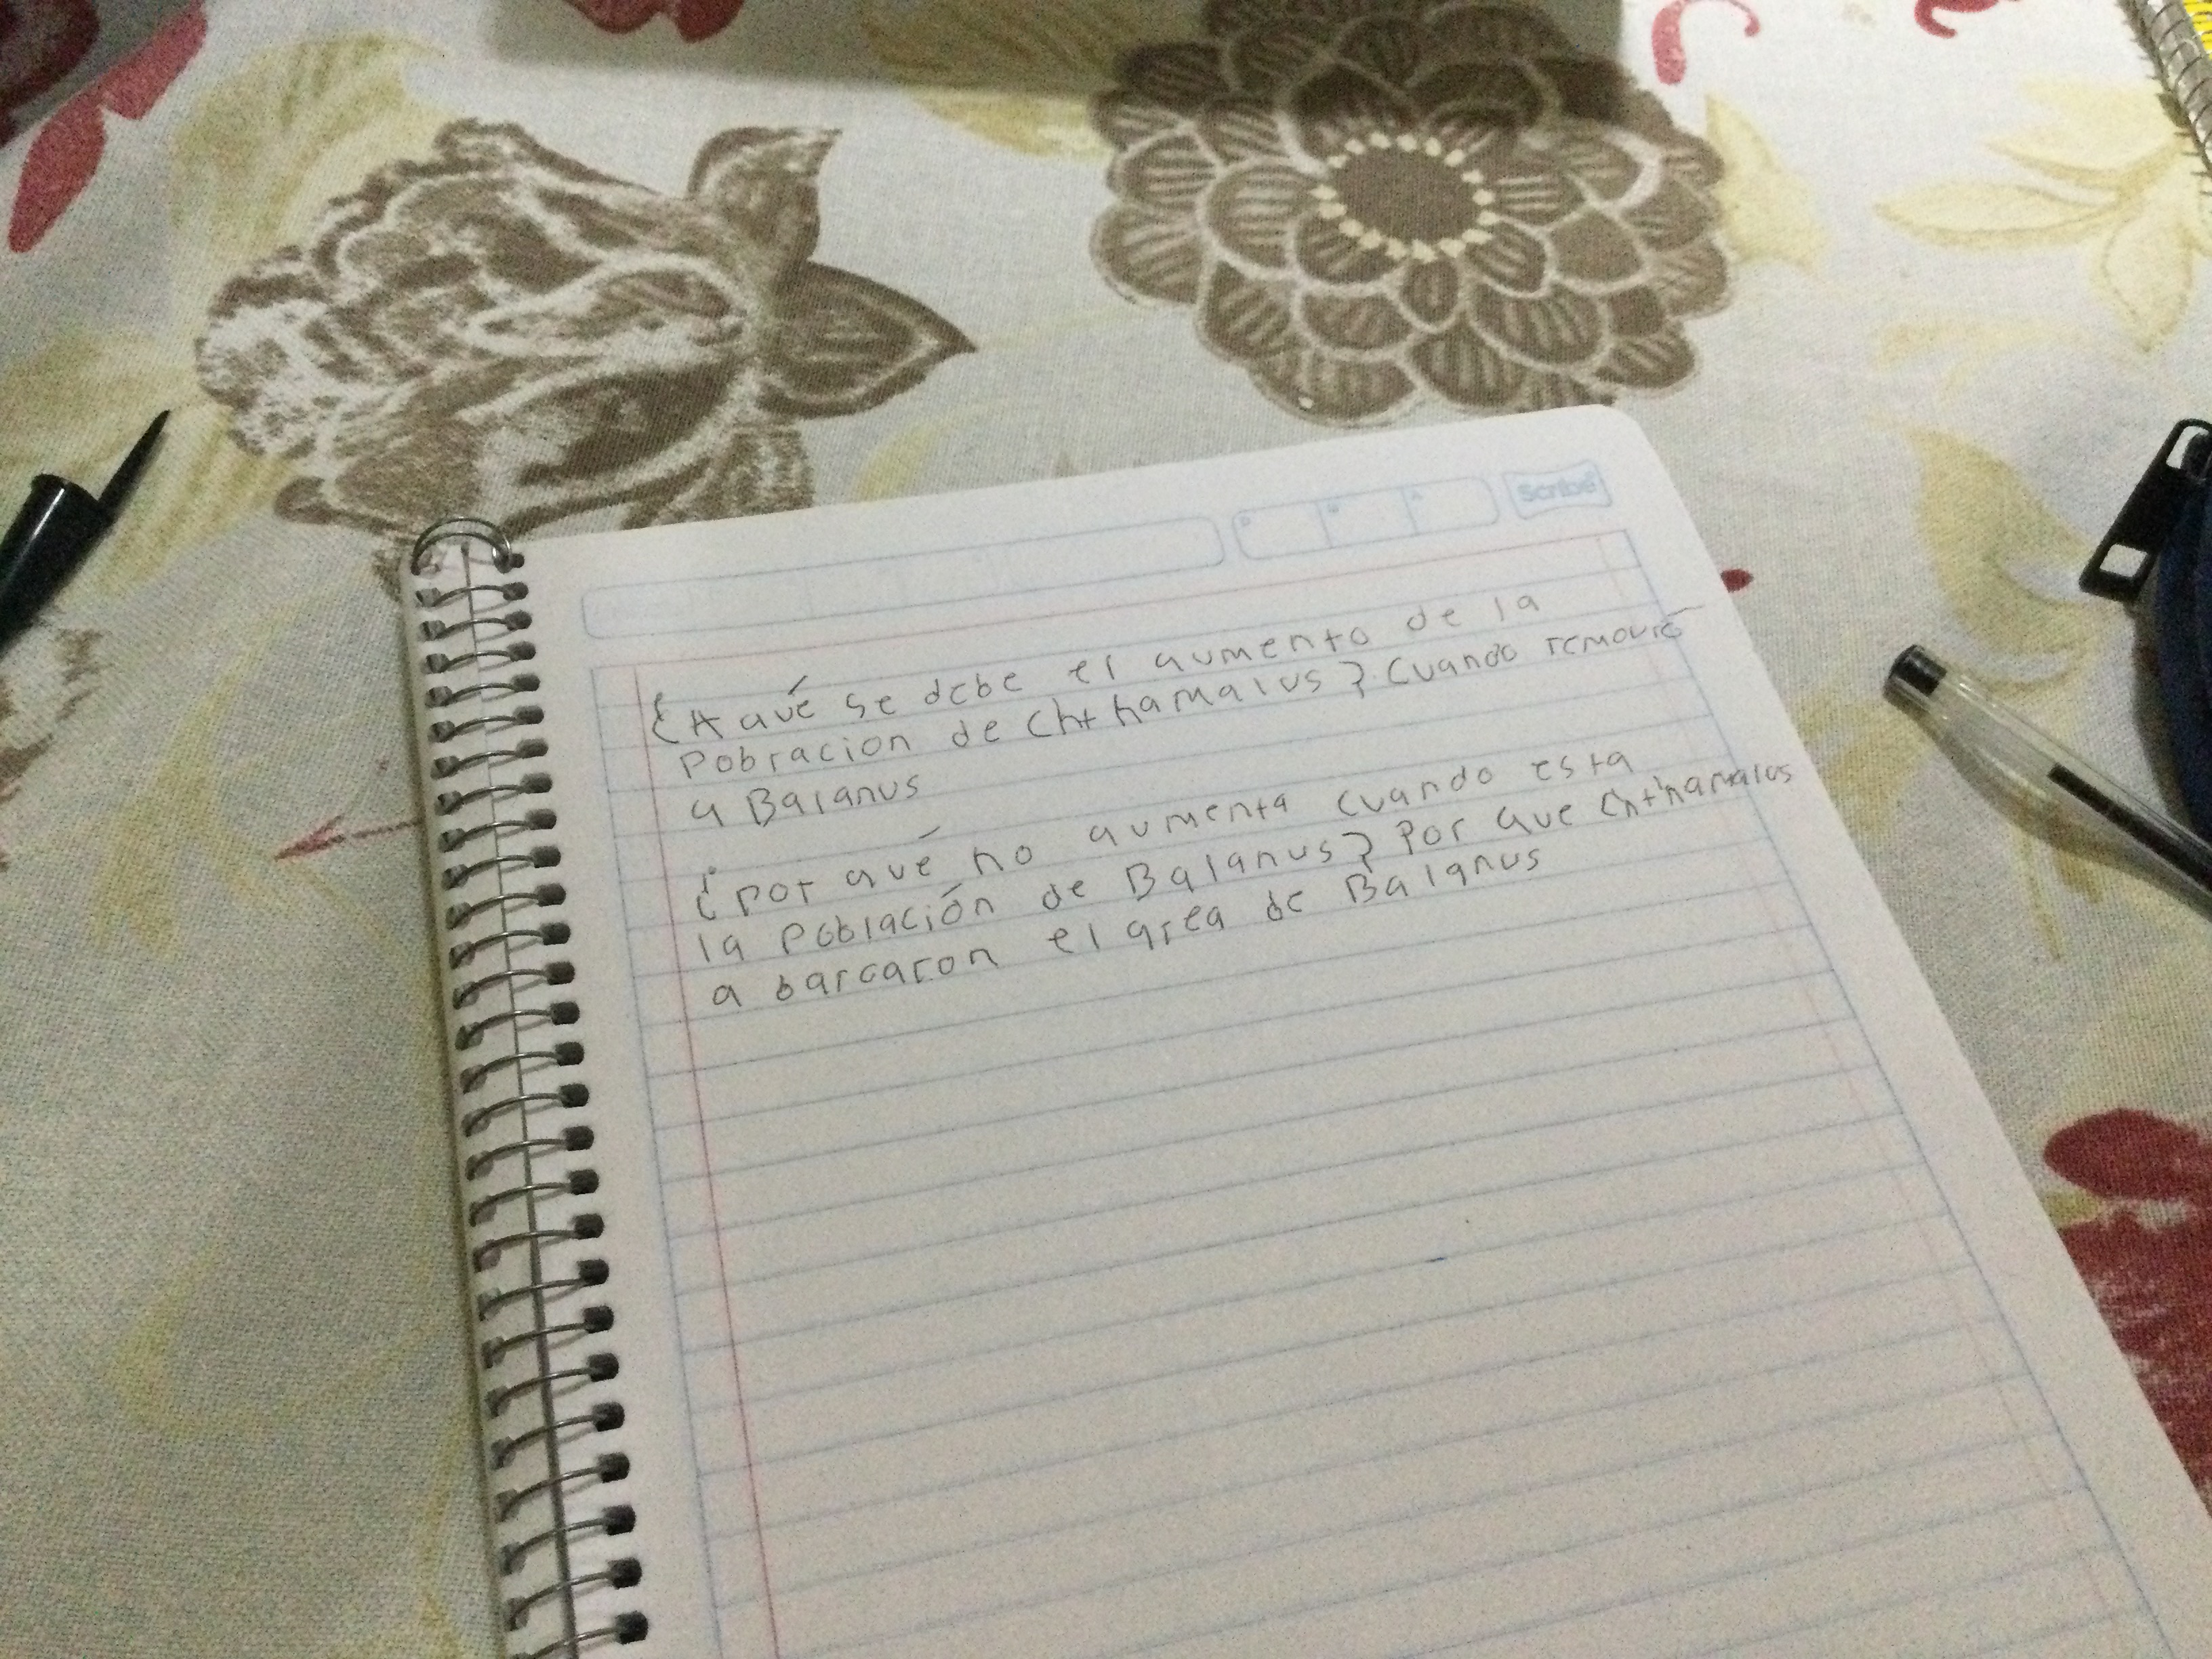 Scribe
¿A qué se debe el aumento de la
Pobracion de Chthamalus? Cuando removió
a Balanus
¿Por qué no aumenta cuando esta
la Población de Balanus? Por que Chthamalus
a barcaron el area de Balanus